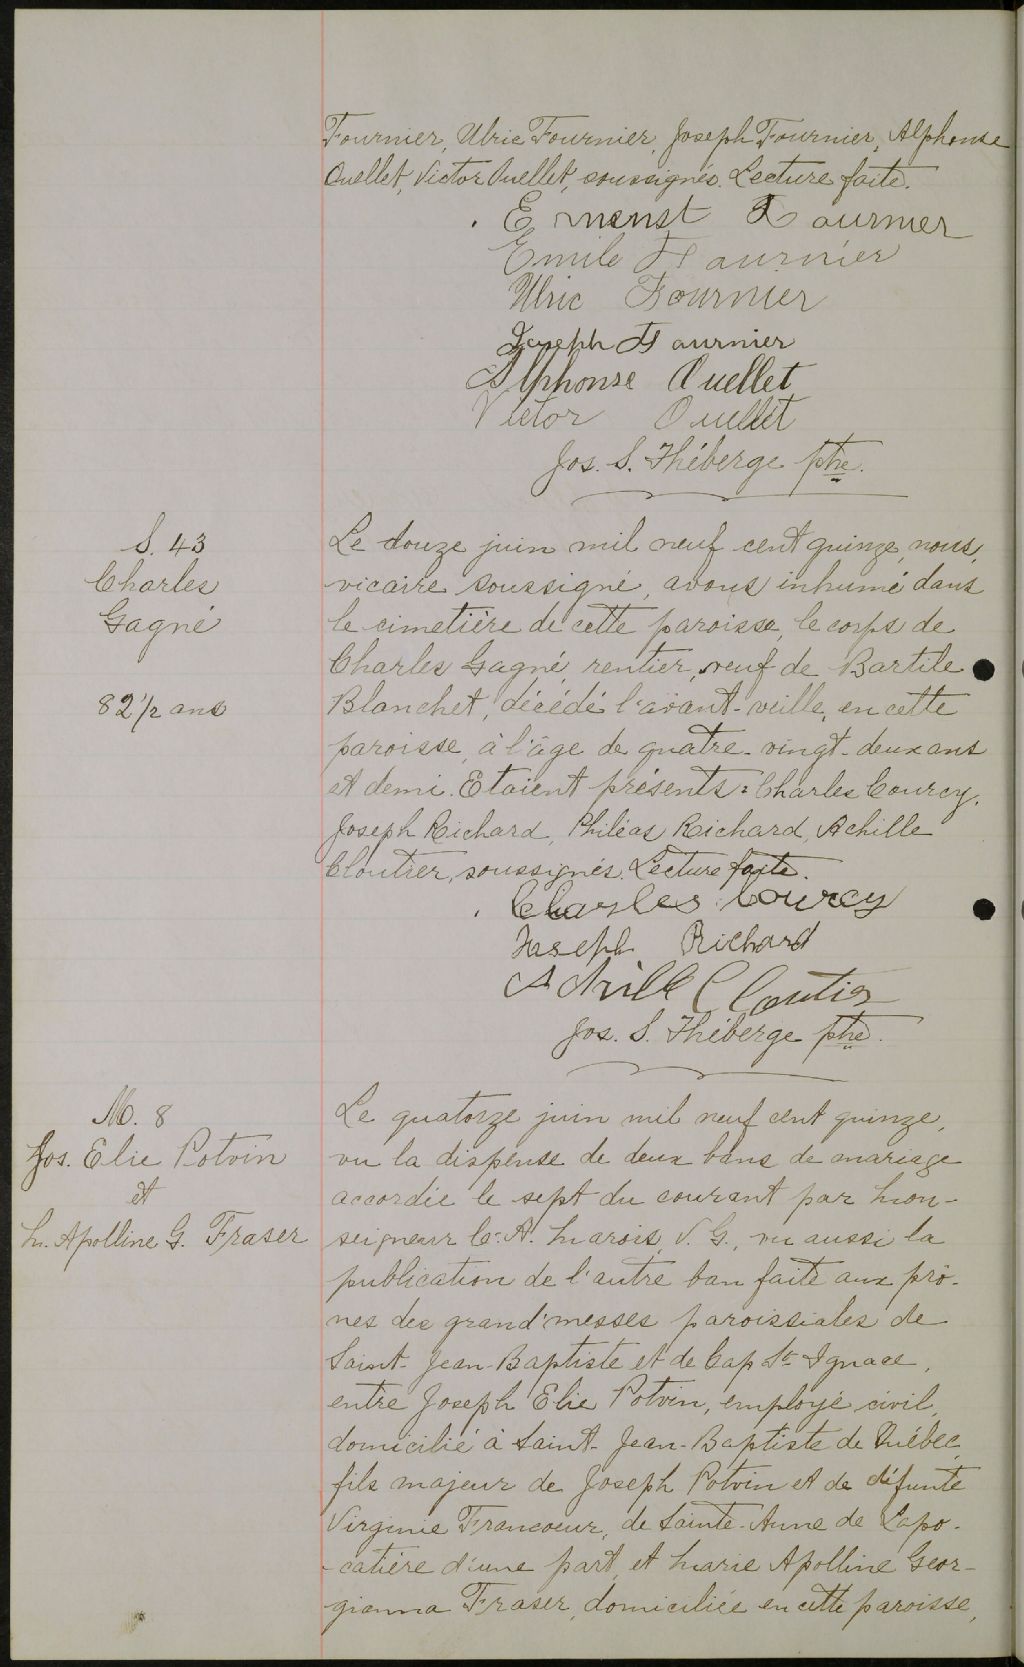 Fournier, Ulric Fournier, Joseph Fournier, Alphonse
Ouellet, Victor Ouellet, soussignés. Lecture faite.
Ernenst Fournier
Emile Fournier
Ulric Fournier
Joseph Fournier
Alphonse Ouellet
Victor Ouellet
Jos. S. Théberge ptre.
S. 43
Charles
Gagné
82 1/2 ans
Le douze juin mil neuf cent quinze, nous,
vicaire soussigné, avons inhumé dans
le cimetière de cette paroisse, le corps de
Charles Gagné, rentier, veuf de Bartile
Blanchet, décédé l'avant-veille, en cette
paroisse, à l'âge de quatre-vingt-deux ans
et demi. Etaient présents: Charles Courcy,
Joseph Richard, Philéas Richard, Achille
Cloutier, soussignés. Lecture faite.
Charles Courcy
Joseph Richard
Achille Cloutier
Jos. S. Théberge ptre.
M. 8
Jos. Elie Potvin
et
M. Apolline G. Fraser
Le quatorze juin mil neuf cent quinze,
vu la dispense de deux bans de mariage
accordée le sept du courant par Mon-
seigneur C. A. Marois, V. G., vu aussi la
publication de l'autre ban faite aux prô-
nes des grand'messes paroissiales de
Saint-Jean-Baptiste et de Cap St Ignace,
entre Joseph Elie Potvin, employé civil,
domicilié à Saint-Jean-Baptiste de Québec,
fils majeur de Joseph Potvin et de défunte
Virginie Francoeur, de Sainte-Anne de Lapo-
catière d'une part, et Marie Apolline Geor-
gianna Fraser, domiciliée en cette paroisse,